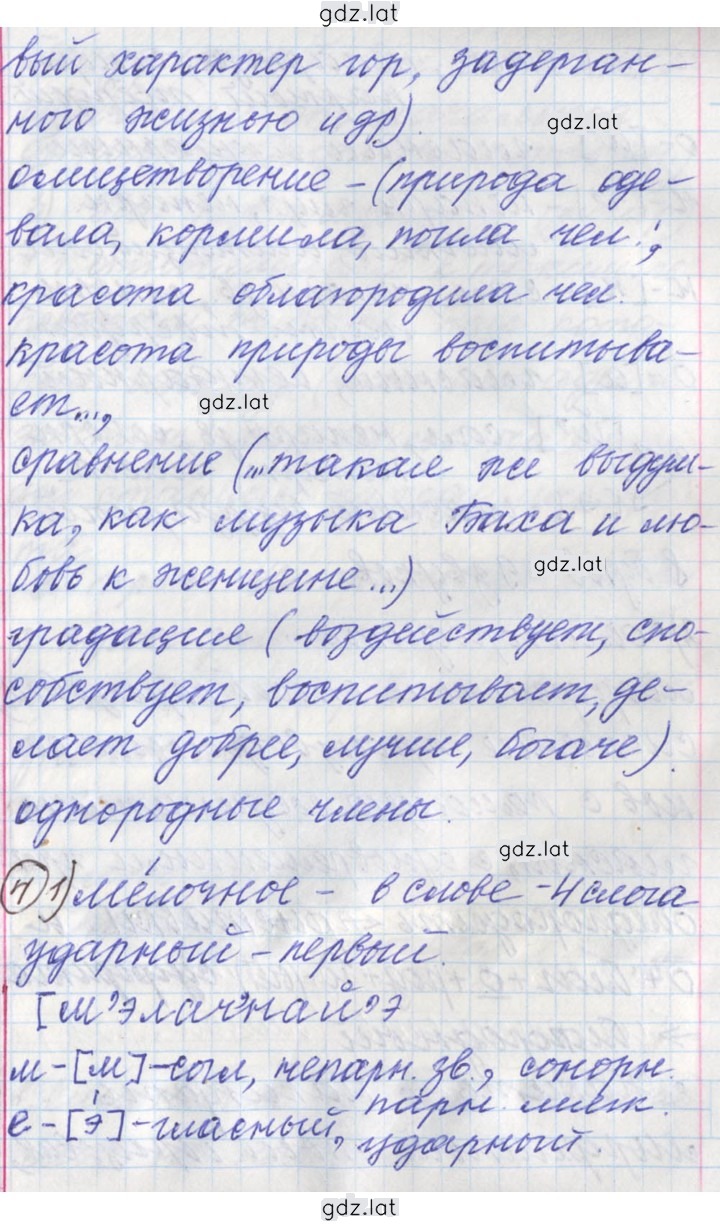 gdz.lat
вый характер гор, задерган-
ного жизнью и др).
gdz.lat
олицетворение - (природа оде-
вала, кормила, поила чел.,
красота облагородила чел.
красота природы воспитыва-
ет...,
gdz.lat
сравнение (...такая же выдум-
ка, как музыка Баха и лю-
бовь к женщине...)
gdz.lat
градация (воздействует, спо-
собствует, воспитывает, де-
лает добрее, лучше, богаче).
однородные члены.
gdz.lat
4 1) ме́лочное - в слове - 4 слога
ударный - первый.
[м'элач'най'э
м - [м] - согл, непарн. зв., сонорн.
парн. мягк.
е - [э́] - гласный, ударный.
gdz.lat